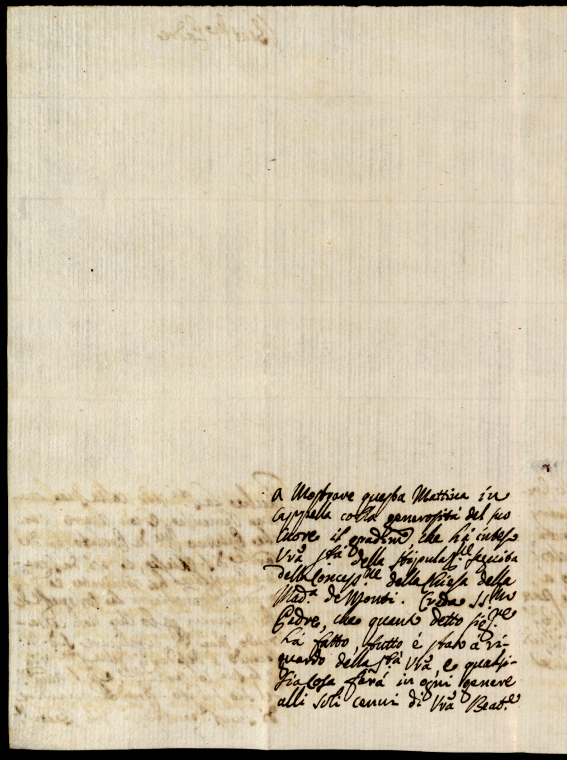 a Mostrare questa Mattina in
Cappella colla generosità del suo
Cuore il gradim.to che hà inteso
Vrã Stà della stipulaz.ne seguita
della Concess.ne della Chiesa della
Mad.a de Monti. Creda SS.mo
Padre, che quanto detto Sig.re
hà fatto, tutto è stato a ri-
guardo della Stà Vrã, e qualsi-
sia cosa farà in ogni genere
alli soli cenni di Vrã Beat.e